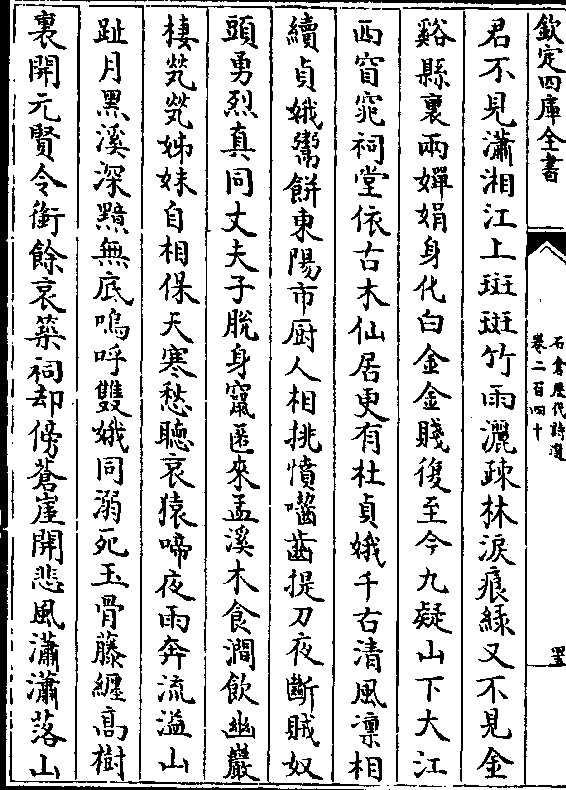 欽定四庫全書
石倉歷代詩選
卷二百四十
君不見瀟湘江上斑斑竹雨灑疎林淚痕綠又不見金
谿縣裏兩嬋娟身化白金金賤後至今九疑山下大江
西窅窕祠堂依古木仙居更有杜貞娥千古清風凛相
續貞娥鬻餅東陽市厨人相挑憤囓齒提刀夜斷賊奴
頭勇烈真同丈夫子脫身竄匿來孟溪木食澗飲幽巖
棲煢煢姊妹自相保天寒愁聽哀猿啼夜雨奔流溢山
趾月黑溪深黯無底嗚呼雙娥同溺死玉骨藤纏高樹
裏開元賢令銜餘哀築祠却傍蒼崖開悲風瀟瀟落山